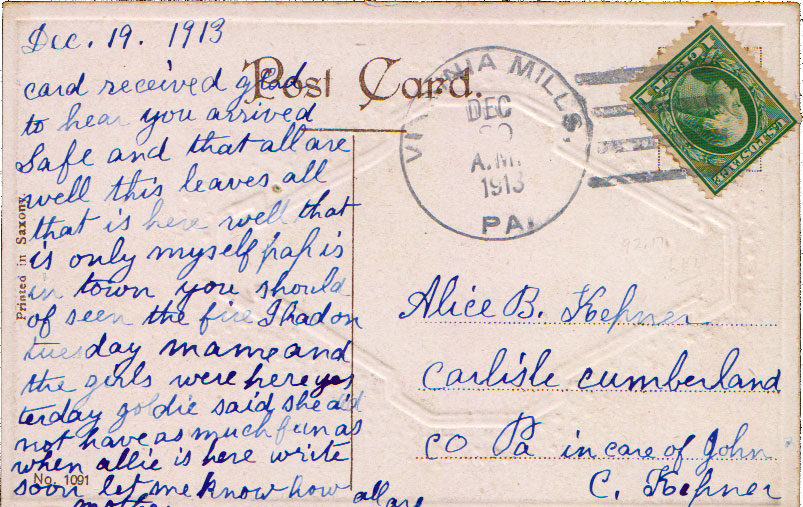 Dec. 19. 1913
card received glad
to hear you arrived
Safe and that all are
well this leaves all
that is here well that
is only myself pah is
in town you should
of seen the fire I had on
tuesday mame and
the girls were here yes
terday goldie said she did
not have as much fun as
when allie is here write
soon let me know how all are
mother
Post Card.
Printed in Saxony.
No. 1091
MILLS,
DEC
A.M.
1913
PA.
Alice B. Kepner
carlisle cumberland
co Pa in care of John
C. Kepner